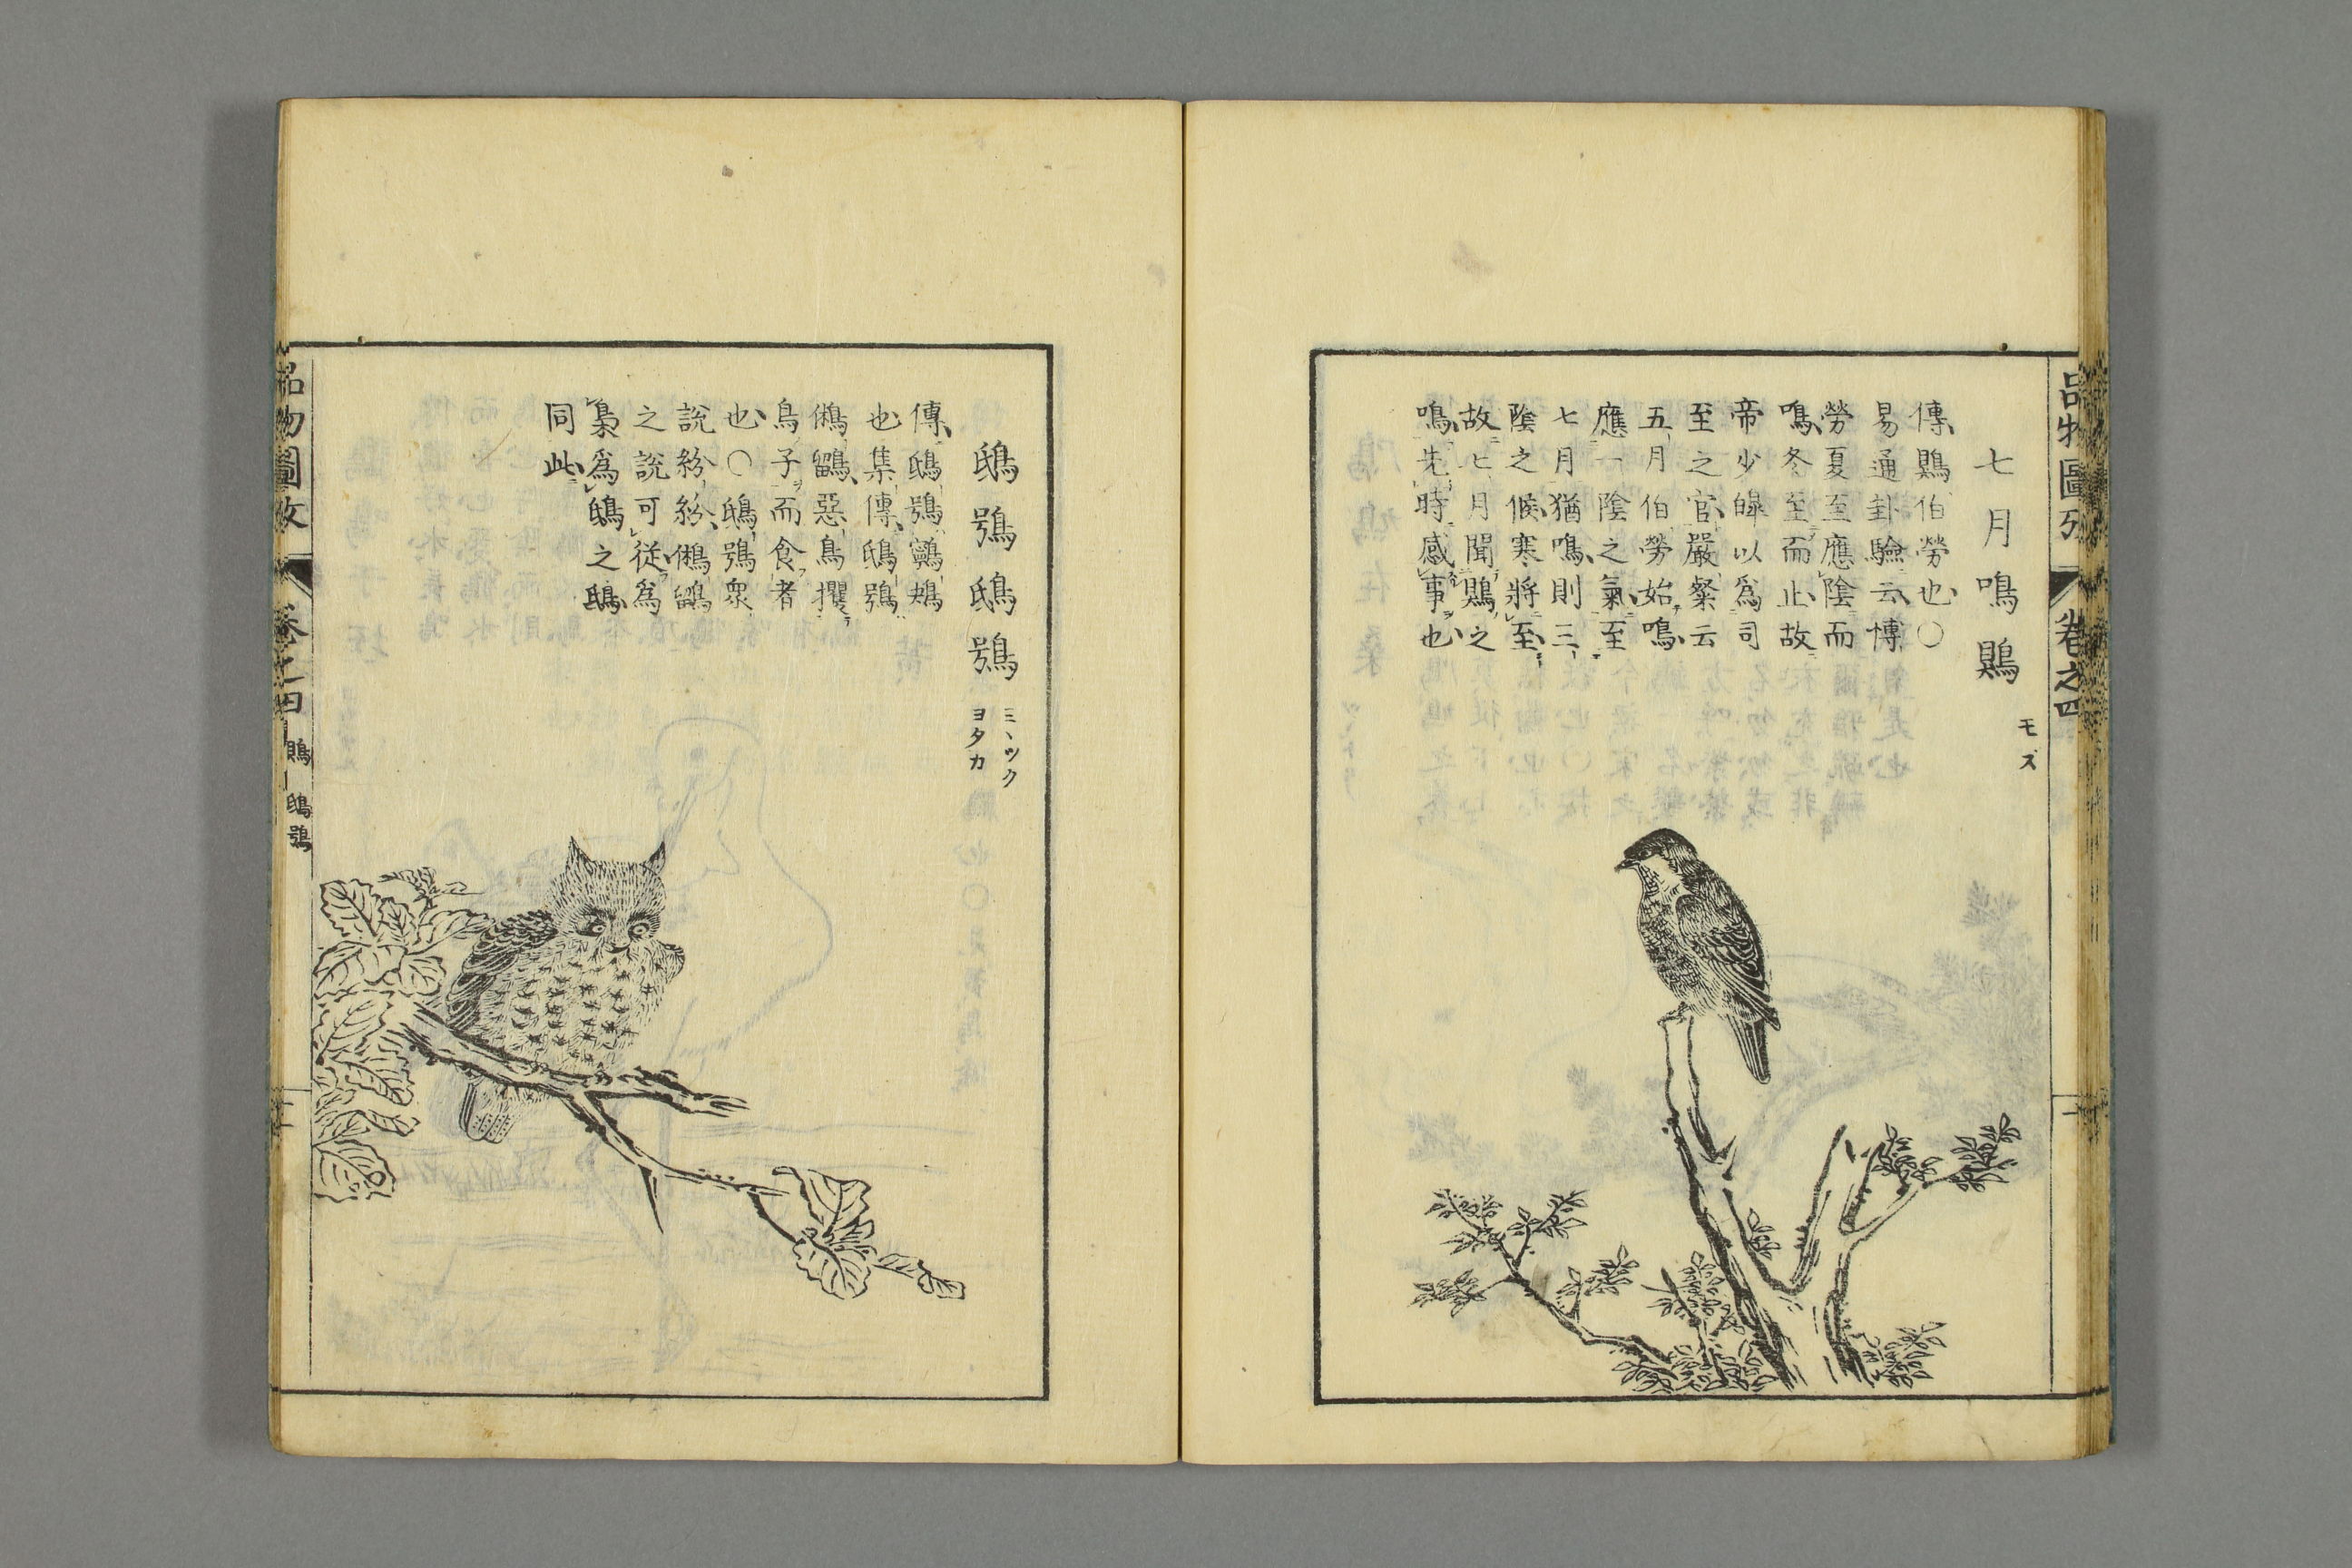 七月鳴鵙 モズ
傳鵙伯勞也○
易通卦驗云博
勞夏至應陰而
鳴冬至而止故
帝少皞以爲司
至之官嚴粲云
五月伯勞始鳴
應一陰之氣至
七月猶鳴則三
陰之候寒將至
故七月聞鵙之
鳴先時感事也
品物圖攷 卷之四
鴟鴞鴟鴞 ミヽツク ヨタカ
傳鴟鴞鸋鴂
也集傳鴟鴞
鵂鶹惡鳥攫
鳥子而食者
也○鴟鴞衆
說紛紛鵂鶹
之說可從爲
梟爲鴟之鴟
同此
品物圖攷 卷之四 鵙 鴟鴞